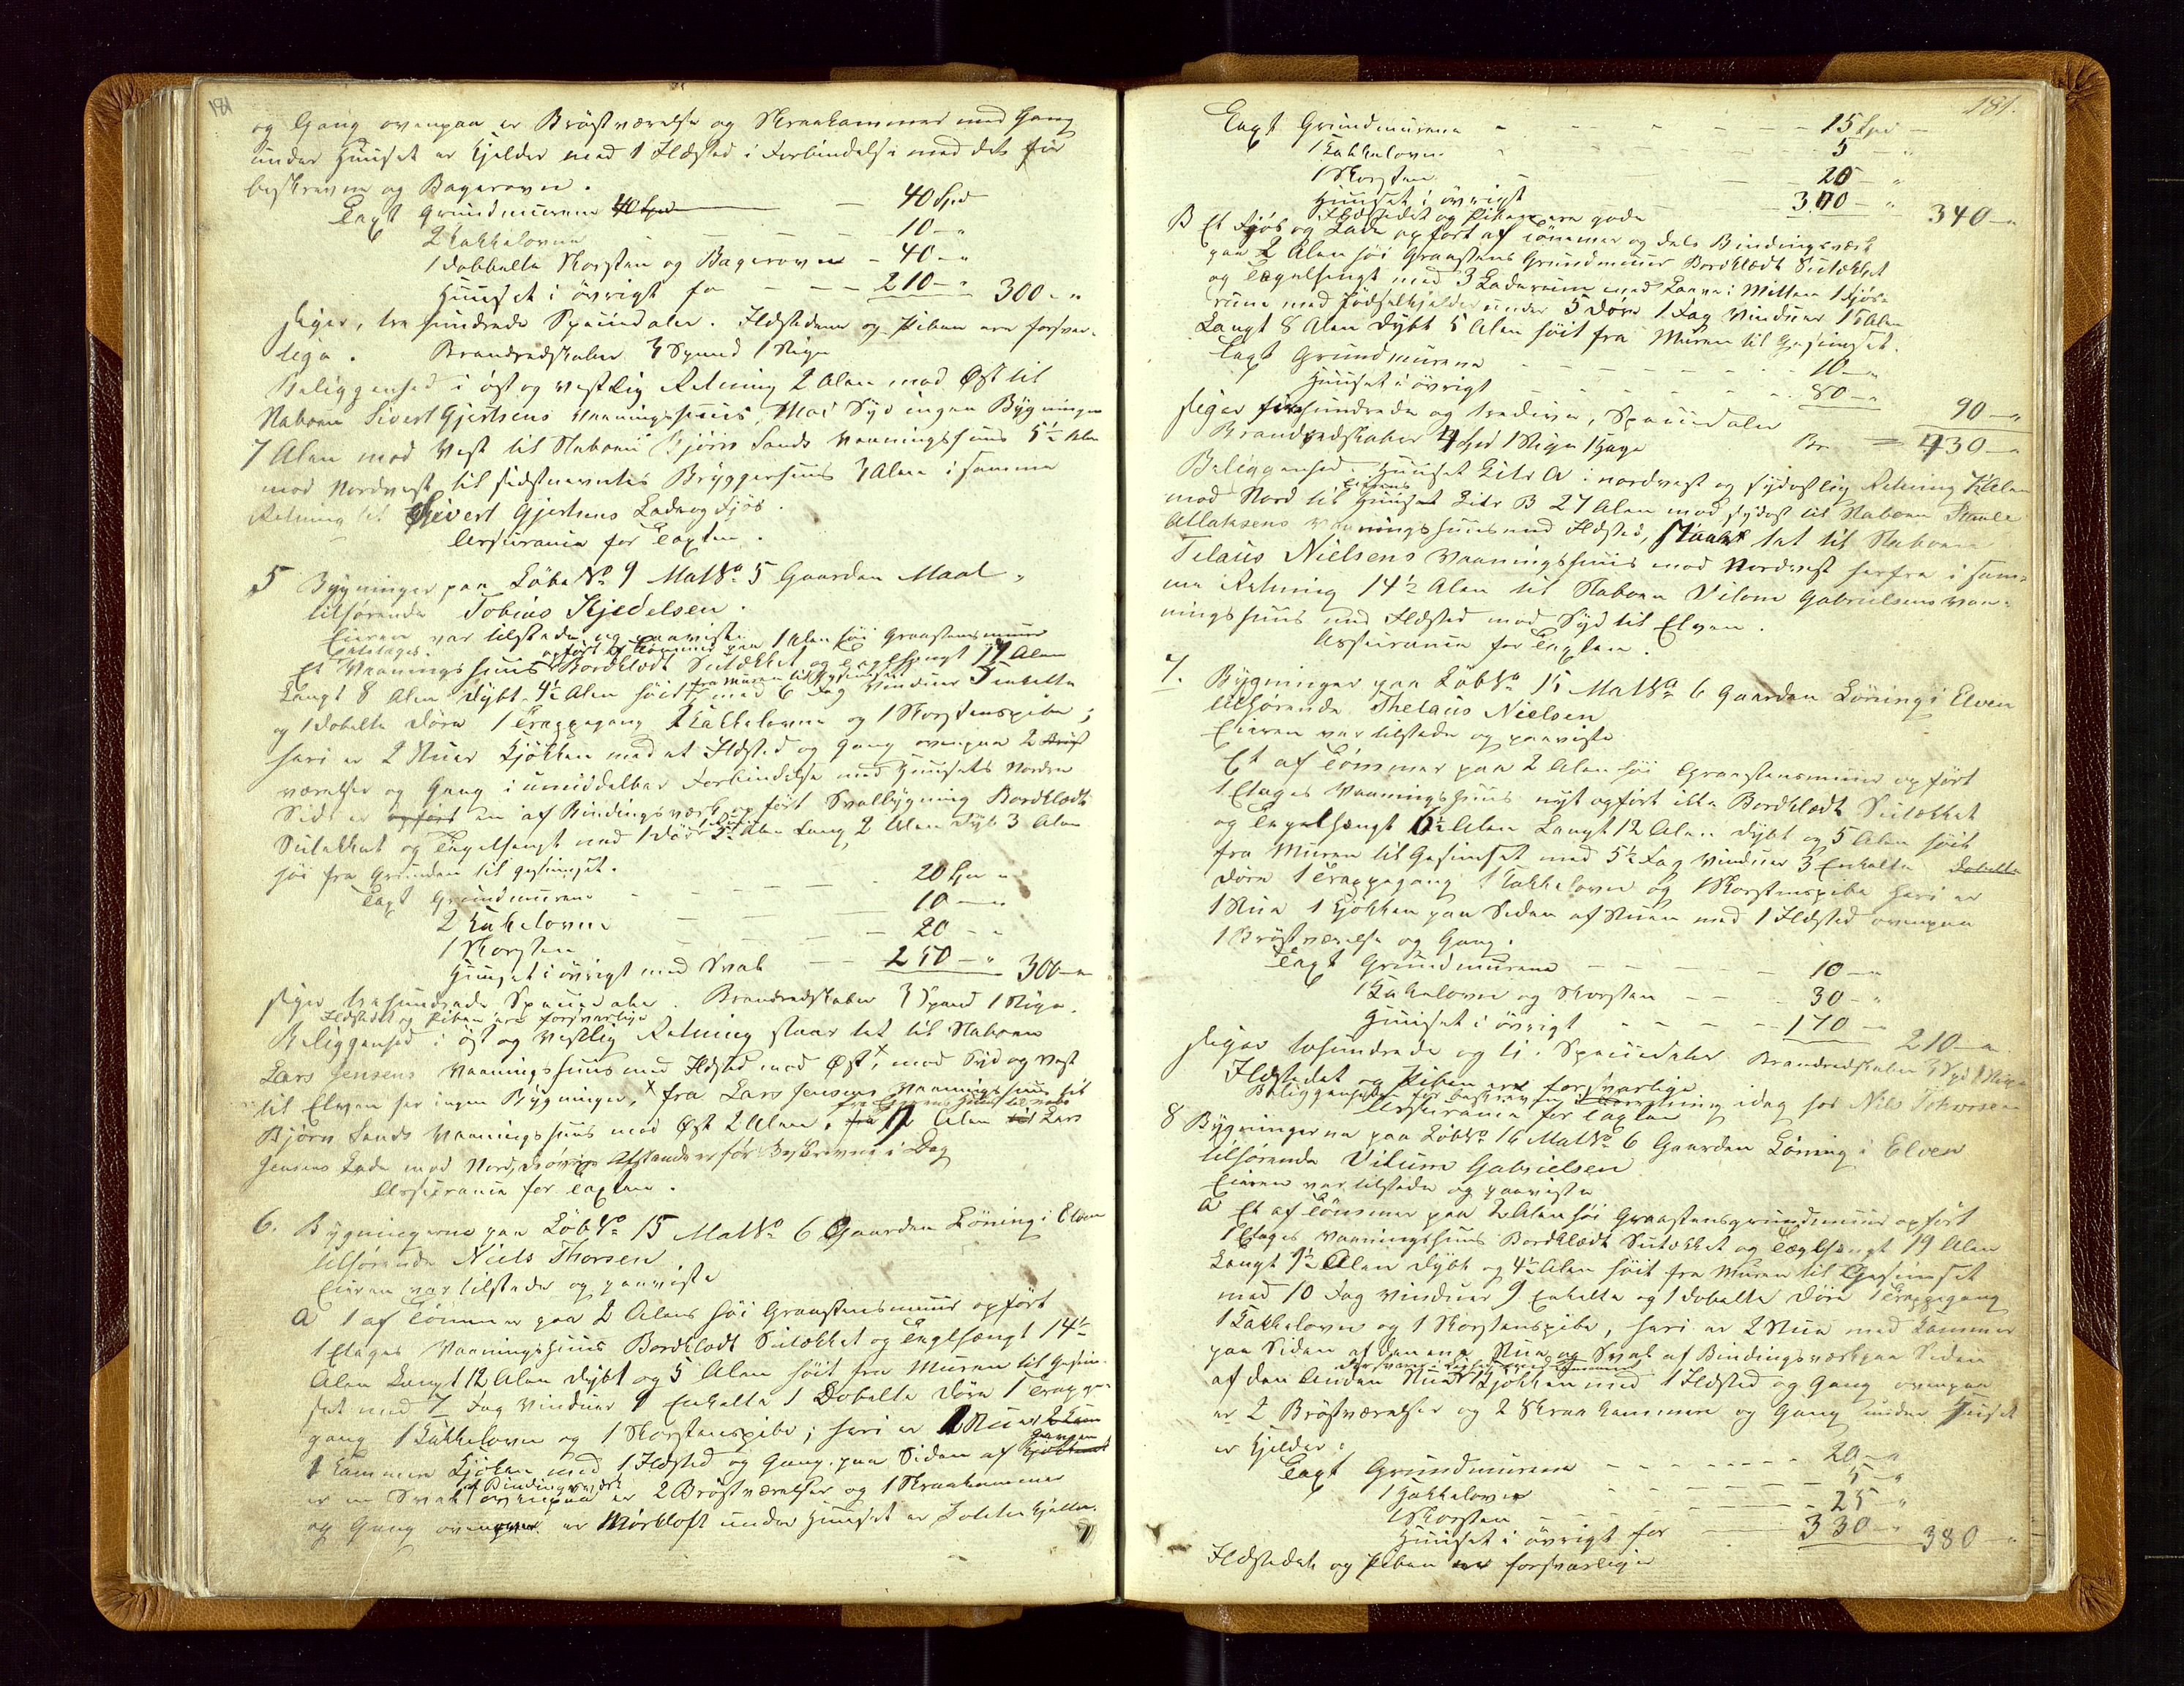 181
og Gang ovenpaa er Bröstværelse og Skraakammer med Gang
under Huuset er Kjelder med 1 Ildsted i Forbindelse med det før
beskrevne og Bagerovn.
Taxt Grundmurene 40 Spd — 40 Spd
2 Kakkelovne — 10 — "
1 dobbelte Skorsten og Bagerovn — 40 — "
Huuset i övrigt for — 210 — " 300 — "
siger, tre hundrede Speciedaler. Ildstedene og Piben ere forsvar-
lige. Brandredskaber 3 Spand 1 Stige
Beliggenhed i öst og vestlig Retning 2 Alen mod Øst til
Naboen Sivert Gjertsens Vaaningshuus, Mod Syd ingen Bygninger
7 Alen mod Vest til Naboen Bjørn Sands Vaaningshuus 5½ Alen
mod Nordvest til sidstnævntes Bryggerhuus 3 Alen i samme
Retning til Sivert Gjertsens Lade og Fjös.
Assurance for Taxten.
5 Bygninger paa Löbe No 9 Mat No 5 Gaarden Maal
tilhørende Tobias Kjedelsen.
Eieren var tilstede og paaviste
Et 1 Etages Vaaningshuus opfört af Tömmer paa 1 Alen höi Graastensmuur Bordklædt Sutækket og Teglhængt 17 Alen
Langt 8 Alen dybt 4½ Alen höit fra Muren til Gesimset med 6 Fag Vinduer 5 enkelte
og 1 dobelte döre 1 Trappegang 2 Kakkelovne og 1 Skorstenspibe;
heri er 2 Stuer Kjökken med et Ildsted og Gang ovenpaa 2 Bröst
værelser og Gang i umiddelbar Forbindelse med Huusets Nordre
Side er opfört en af Bindingsværk opfört Svalbygning Bordklædt
Sutækket og Teglhængt med 1 dör Alen Lang 2 Alen dyb 3 Alen
höi fra Grunden til Gesimset.
Taxt Grundmurene — 20 Spd "
2 Kakelovne — 10 — "
1 Skorsten — 20 — "
Huuset i övrigt med Sval — 250 — " 300 — "
siger trehundrede Speciedaler. Brandredskaber 3 Spand 1 Stige.
Ildstedet og Piben ere forsvarlige
Beliggenhed i öst og vestlig Retning staar tæt til Naboen
Lars Jensens Vaaningshuus med Ildsted mod Øst, x mod Syd og Vest
til Elven her ingen Bygninger, x fra Lars Jensens Vaaningshuus til
Bjørn Sands Vaaningshuus mod Øst 2 Alen. fra 12 Alen til Lars
Jensens Lade mod Nord, de övrige Afstande er för Beskrevne i Dag
Assurance for Taxten.
6. Bygningerne paa Löb No 15 Mat No 6 Gaarden Löning i Elven
tilhørende Niels Thorsen
Eieren var tilstede og paaviste
A 1 af Tömmer paa 2 Alens höi Graastensmuur opfört
1 Etages Vaaningshuus Bordklædt Sutækket og Teglhængt 14½
Alen Langt 12 Alen dybt og 5 Alen höit fra Muren til Gesim-
set med 7 Fag Vinduer 9 Enkelte 1 Dobelte döre 1 Trappe-
gang 1 Kakkelovn og 1 Skorstenspibe; heri er 2 Stuer 2 Kam
1 Kammer Kjöken med 1 Ildsted og Gang. paa Siden af Gangen Kjökkenet
er en Sval af Bindingsværk ovenpaa er 2 Bröstværelser og 1 Skraakammer
og Gang ovenover er Mörkloft under Huuset er Potetes Kjelder.
181.
Taxt Grundmurene — 15 Spd —
1 Kakkelovn — 5 — "
1 Skorsten — 20 — "
Huuset i övrigt — 300 — " 340 — "
Ildstedet og Piben ere gode
B Et Fjös og Lade opfört af Tömmer og dels Bindingsværk
paa 2 Alen höi Graastens Grundmuur Bordklædt Sutækket
og Teglhængt med 3 Laderum med Laave i Midten 1 Fjös-
rum med Gödselkjelder under 5 döre 1 Fag Vinduer 15 Alen
Langt 8 Alen dybt 5 Alen höit fra Muren til Gesimset.
Taxt Grundmurene — 10 — "
Huuset i övrigt — 80 — " 90 — "
siger firehundrede og tredive, Speciedaler = 430 — "
Brandredskaber 4 Spd 1 Stige 1 Hage
Beliggenhed. Huuset Litr A i nordvest og sydostlig Retning 7½ Alen
mod Nord til Eierens Huus Litr B 27 Alen mod sydost til Naboen Staale
Atlaksens Vaaningshuus med Ildsted, staaer tæt til Naboen
Telaus Nielsens Vaaningshuus mod Nordvest herfra i sam-
me Retning 14½ Alen til Naboen Vitom Gabrielsens Vaa-
ningshuus med Ildsted mod Syd til Elven.
Assurance for Taxten.
7. Bygninger paa Löb No 15 Mat No 6 Gaarden Löning i Elven
tilhørende Thelaus Nielsen
Eieren var tilstede og paaviste
Et af Tömmer paa 2 Alen höi Graastensmuur opfört
1 Etages Vaaningshuus nyt opfört ikke Bordklædt Sutækket
og Teglhængt Alen Langt 12 Alen dybt og 5 Alen höit
fra Muren til Gesimset med 5½ Fag Vinduer 3 Enkelte dobelte
döre 1 Trappegang 1 Kakkelovn og 1 Skorstenspibe heri er
1 Stue 1 Kjökken paa Siden af Stuen med 1 Ildsted ovenpaa
1 Bröstværelse og Gang.
Taxt Grundmurene — 10 — "
1 Kakelovn og Skorsten — 30 — "
Huuset i övrigt — 170 — " 210 — "
siger tohundrede og ti. Speciedaler Brandredskaber 1 Stige
Ildstedet og Piben ere forsvarlige
Beliggenheden för beskreven i Forretning idag hos Nils Tohorsen
Assurance for Taxten
8 Bygningerne paa Löb No 16 Mat No 6 Gaarden Löning i Elven
tilhørende Vitum Gabrielsen
Eieren var tilstede og paaviste
A Et af Tömmer paa 2 Alen höi Graastensgrundmuur opfört
1 Etages Vaaningshuus Bordklædt Sutækket og Teglhængt 19 Alen
Langt 9½ Alen dybt og 4½ Alen höit fra Muren til Gesimset
med 10 Fag Vinduer 9 Enkelte og 1 dobelte döre 1 Trappegang
1 Kakkelovn og 1 Skorstenspibe, heri er 2 Stuer med Kammer
paa Siden af den ene Stue og Sval af Bindingsværk paa Siden
af den Anden Stue Kjökken med 1 Ildsted og Gang ovenpaa
er 2 Bröstværelser og 2 Skraakammere og Gang under Huuset
er Kjelder.
Taxt Grundmurene — 20 — "
1 Kakkelovn — 5 — "
1 Skorsten — 25 — "
Huuset i övrigt for — 330 — " 380 — "
Ildstedet og Piben ere forsvarlige